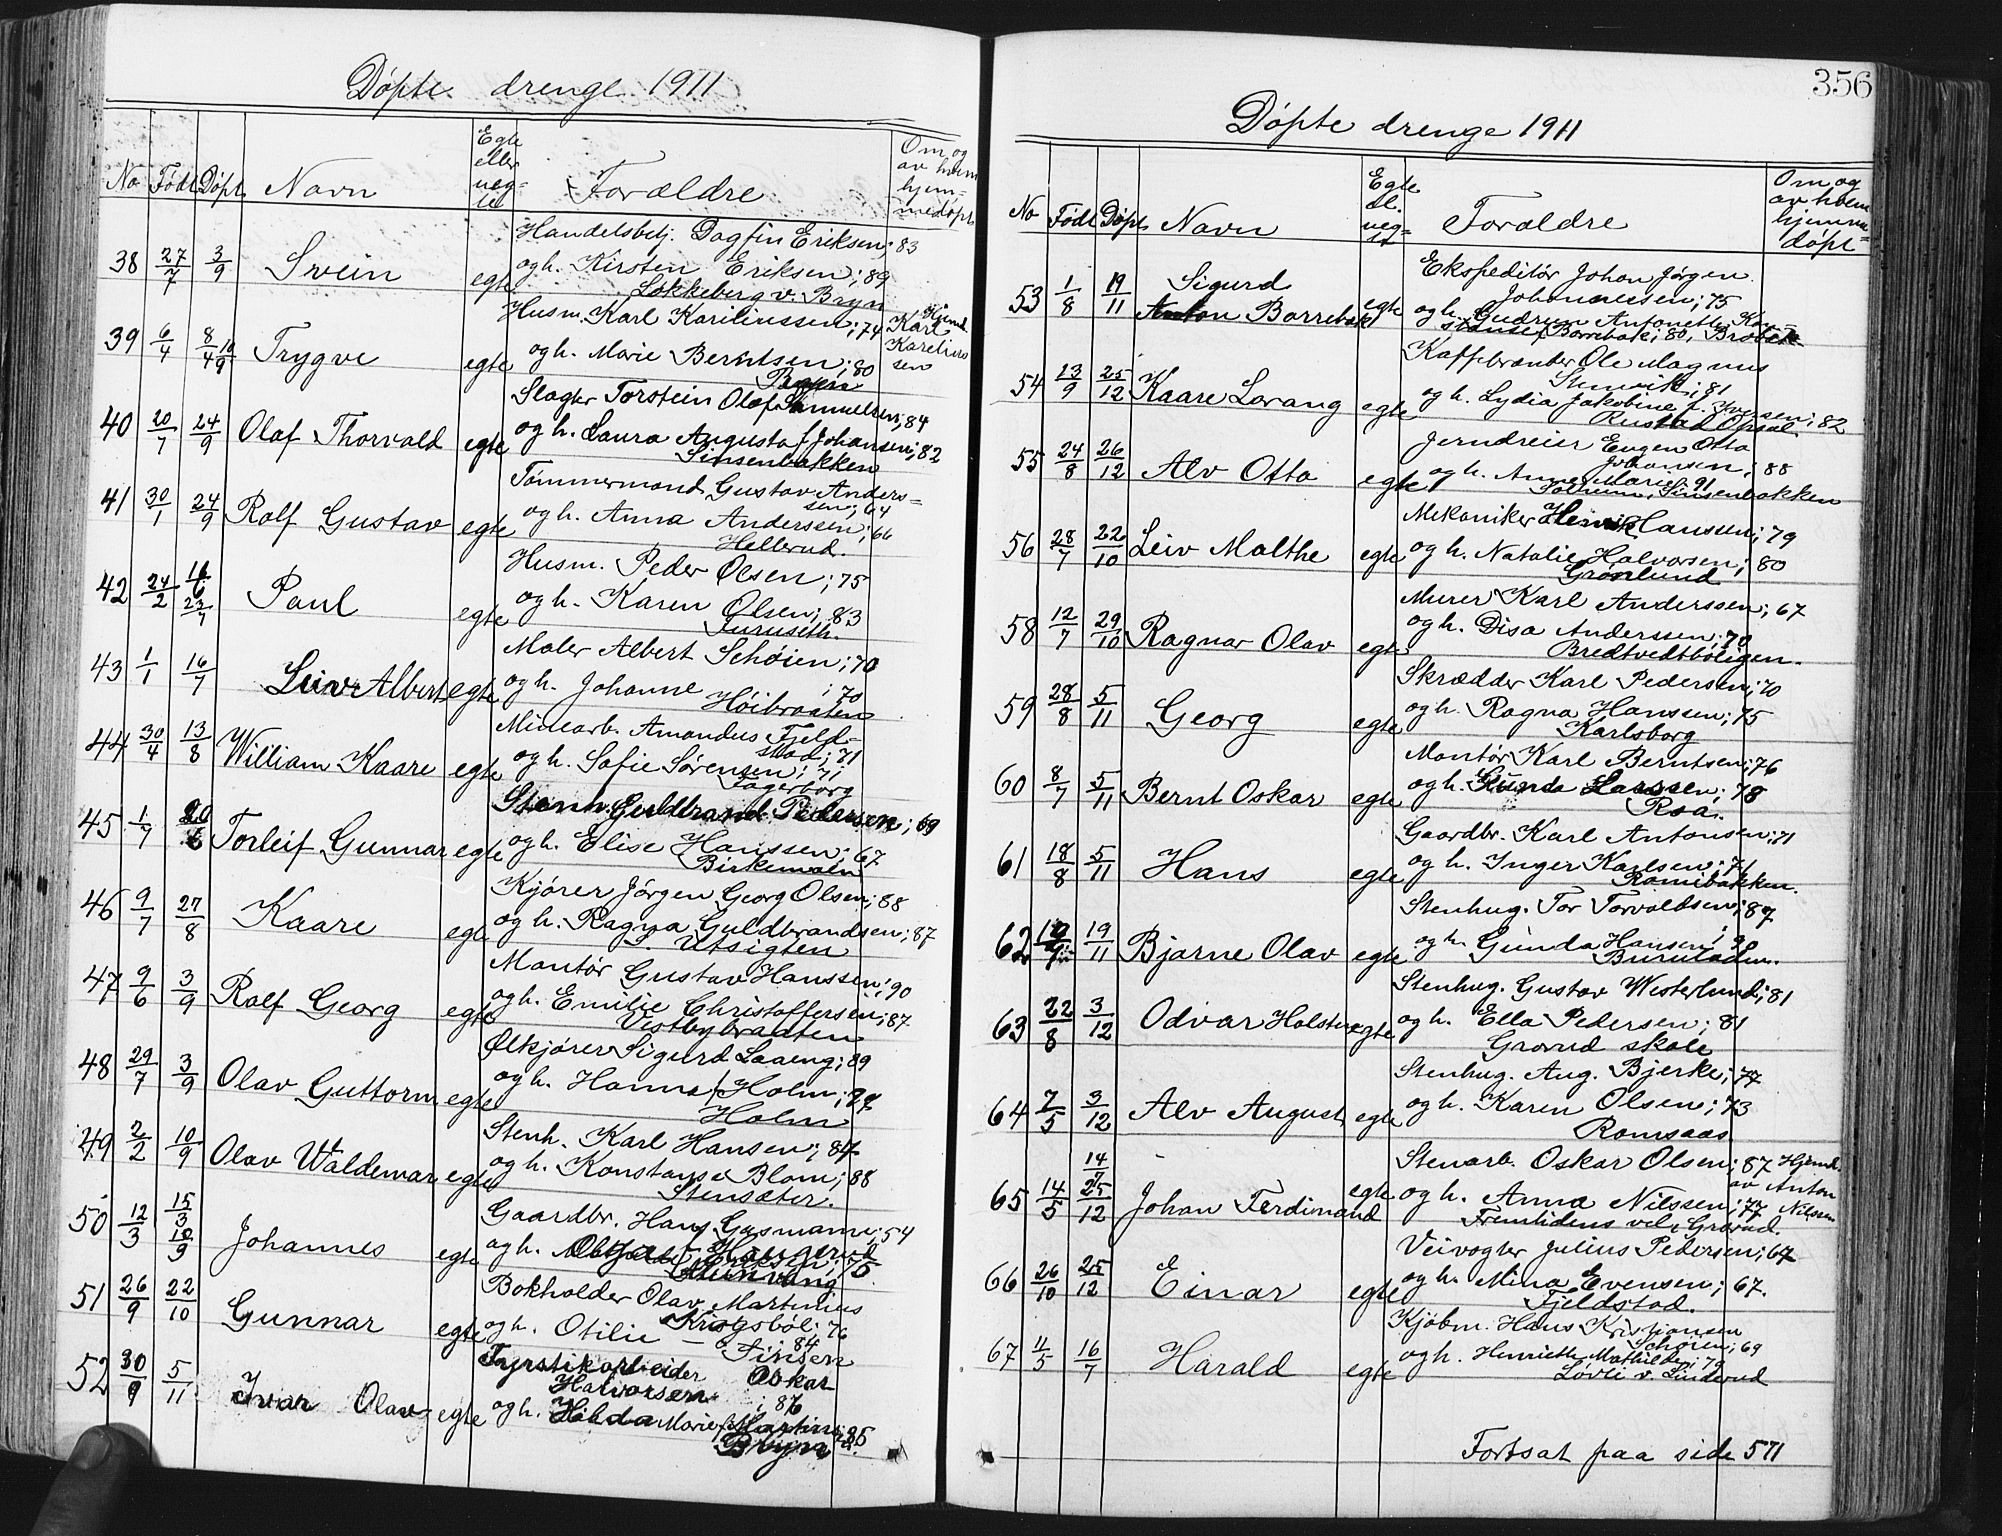 Døpte drenge 1911
No Født Døpt Navn Egte eller ueg-te Forældre Om og av hvem hjem-medøpt
38 27/7 3/9 Svein egte Handelsbetj. Dagfin Eriksen; 83
og h. Kirsten Eriksen; 89
Løkkeberg v. Bryn
39 6/4 8/4 10/9 Trygve egte Husm. Karl Kariliussen; 74 Hjemd Karl Karelius sen
og h. Marie Berntsen; 80
Bryn
40 20/7 24/9 Olaf Thorvald egte Slagter Torstein Olaf Samuelsen; 84
og h. Laura Augusta f. Johansen; 82
Sinsenbakken
41 30/1 24/9 Rolf Gustav egte Tømmermand Gustav Anders-
sen; 64
og h. Anna Anderssen; 66
Hellerud.
42 24/2 16/6 23/7 Paul egte Husm. Peder Olsen; 75
og h. Karen Olsen; 83
Furuseth.
43 1/1 16/7 Leiv Albert egte Maler Albert Schøien; 70
og h. Johanne ; 70
Høibraaten
44 30/4 13/8 William Kaare egte Minearb. Amandus Fjeld-
stad; 71
og h. Sofie Sørensen; 71
Fagerborg
45 1/7 20/6 Torleif Gunnar egte Stenh. Guldbrand Pedersen; 69
og h. Elise Hanssen; 67
Birkemoen
46 9/7 27/8 Kaare egte Kjører Jørgen Georg Olsen; 88
og h. Ragna Guldbrandsen; 87
Utsigten
47 9/6 3/9 Rolf Georg egte Montør Gustav Hanssen; 90
og h. Emilie Christoffersen; 87
Vestbybraaten
48 29/7 3/9 Olav Guttorm egte Ølkjører Sigurd Laaeng; 89
og h. Hanna f. Holm; 87
Holm
49 2/2 10/9 Olav Waldemar egte Stenh. Karl Hansen; 87
og h. Konstanse Blom; 88
Stensæter.
50 12/3 15/3 10/9 Johannes egte Gaardbr. Hans Gasmann; 54
og h. Haugerud
51 26/9 22/10 Gunnar egte Bokholder Olav Martinius
Krogsbøl; 76
og h. Otilie — 84
Finsen
52 30/9 5/11 Ivar Olav egte Fyrstikarbeider Oskar
Halvorsen ; 86
og h. Hilda Marie f. Martins; 85
Bryn
356
Døpte drenge 1911
No Født Døpt Navn Egte el. ueg-te Forældre Om og av hvem hjemme-døpt
53 1/8 19/11 Sigurd Anton Borrebæk egte Ekspeditør Johan Jørgen
Johannessen; 75
og h. Gudrun Antonette Kon-
stanse f. Borrebæk; 80, Brobæk
54 13/9 25/12 Kaare Lorang egte Kaffebrænder Ole Magnus
Stenvik; 81
og h. Lydia Jakobine f. Iversen; 82
Rustad Opsal
55 24/8 26/12 Alv Otto egte Jerndreier Eugen Otto
Johansen; 88
og h. Anne Marie; 91
Solheim, Sinsenbakken
56 28/7 22/10 Leiv Malthe egte Mekaniker Henrik Hanssen; 79
og h. Natalie Halvorsen; 80
Grønlund
58 12/7 29/10 Ragnar Olav egte Murer Karl Anderssen; 67
og h. Disa Anderssen; 70
Bredtvedtboligen.
59 28/8 5/11 Georg egte Skrædder Karl Pedersen; 70
og h. Ragna Hanssen; 75
Karlsborg
60 8/7 5/11 Bernt Oskar egte Montør Karl Berntsen; 76
og h. Gunda Larssen; 78
Roa.
61 18/8 5/11 Hans egte Gaardbr. Karl Antonsen; 71
og h. Inger Karlsen; 71
Romibakken.
62 19/11 Bjarne Olav egte Stenhug. Tor Torvaldsen; 87
og h. Gunda Hansen;
63 22/8 3/12 Odvar Holsten egte Stenhug. Gustav Westerlund; 81
og h. Ella Pedersen; 81
Grorud skole
64 7/5 3/12 Alv August egte Stenhug. Aug. Bjerke; 77
og h. Karen Olsen; 73
Romsaas
65 14/5 14/7 25/12 Johan Ferdinand egte Stenarb. Oskar Olsen; 87 Hjemd. av Anton Nilsen
og h. Anna Nilssen; 77
Fremtidens vel, Grorud.
66 26/10 25/12 Einar egte Veivogter Julius Pedersen; 67
og h. Mina Evensen; 67.
Fjeldstad.
67 4/5 16/7 Harald egte Kjøbm. Hans Kristiansen
Schøien; 69
og h. Henriette Mathilde; 72
Løvli v. Linderud
Fortsat paa side 571